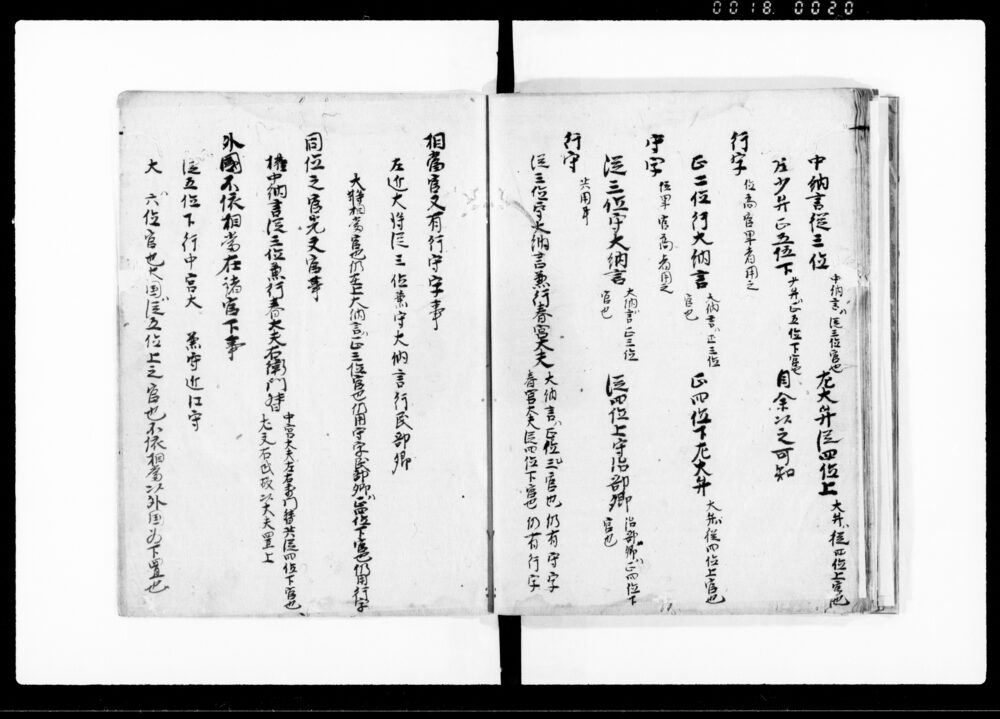 0018 0020
中納言従三位 中納言ハ従三位官也 左大弁従四位上 大弁ハ従四位上官也
左少弁正五位下 少弁ハ正五位下官也 自余以之可知
行字 位高官卑者用之
正二位行大納言 大納言ハ正三位官也 正四位下左大弁 大弁ハ従四位上官也
守字 位卑官高者用之
従三位守大納言 大納言ハ正三位官也 従四位上守治部卿 治部卿ハ正四位下官也
行守 共用事
従三位守大納言兼行春宮大夫 大納言ハ正位三官也仍有守字 春宮大夫従四位下官也仍有行字
相当官又有行守字事
左近大将従三位兼守大納言行民部卿
大将相当官也仍 大納言ハ正三位官也仍用守字民部卿ハ正四位下官也仍用行字
同位之官先文官事
権中納言従三位兼行春大夫右衛門督 中宮大夫左右衛門督共従四位下官也 左文右武故以大夫置上
外國不依相当在諸官下事
従五位下行中宮大 兼守近江守
大 ハ六位官也大国ハ従五位上之官也不依相当以外国為下置也